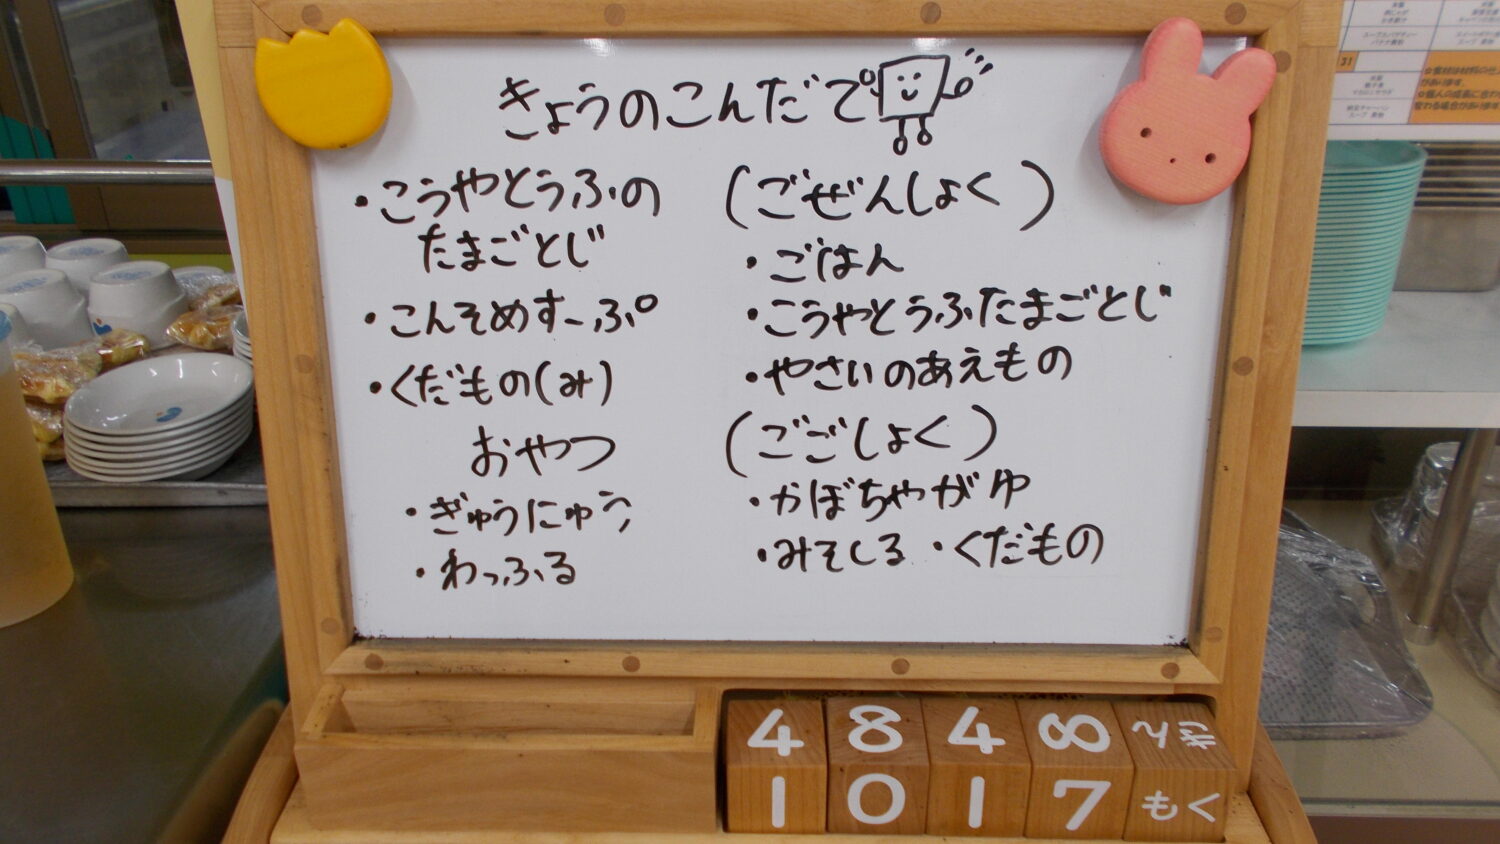 きょうのこんだて
・こうやとうふの
たまごとじ
・こんそめすーぷ
・くだもの(み)
おやつ
・ぎゅうにゅう
・わっふる
(ごぜんしょく)
・ごはん
・こうやとうふたまごとじ
・やさいのあえもの
(ごごしょく)
・かぼちゃがゆ
・みそしる ・くだもの
4 8 4 8 きん
1 0 1 7 もく
31